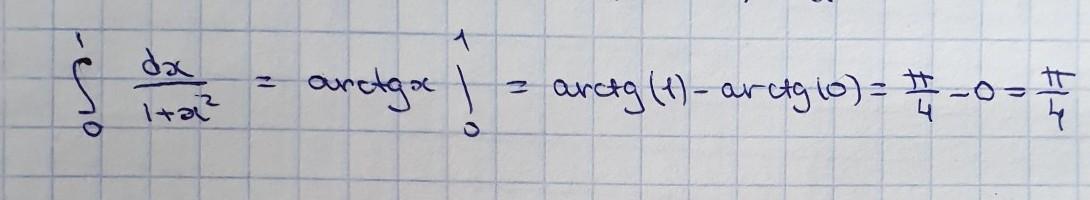 ∫₀¹ dx/(1+x²) = arctgx |₀¹ = arctg(1) - arctg(0) = π/4 - 0 = π/4